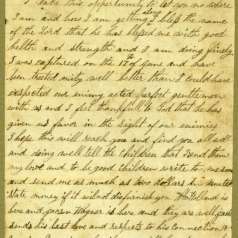 I take this opportunity to let you no where
I am and how I am getting along I bless the name
of the lord that he has blessed me with good
helth and strength and I am doing finely
I was captured on the 15 of June and have
ben treated mity well better than I could have
expected our enimy acted perfect gentlemen
with us and I feel thankfull to God that he has
given us favor in the sight of our enimies
I hope this will reach you and find you all well
and doing well tell the children that I send them
my love and to be good children write to me soon
and send me as much as two dollars in
state money if it will not disfurnish you Holland is
here and Wagner is here and they are well
sends his last love and respects to his connections